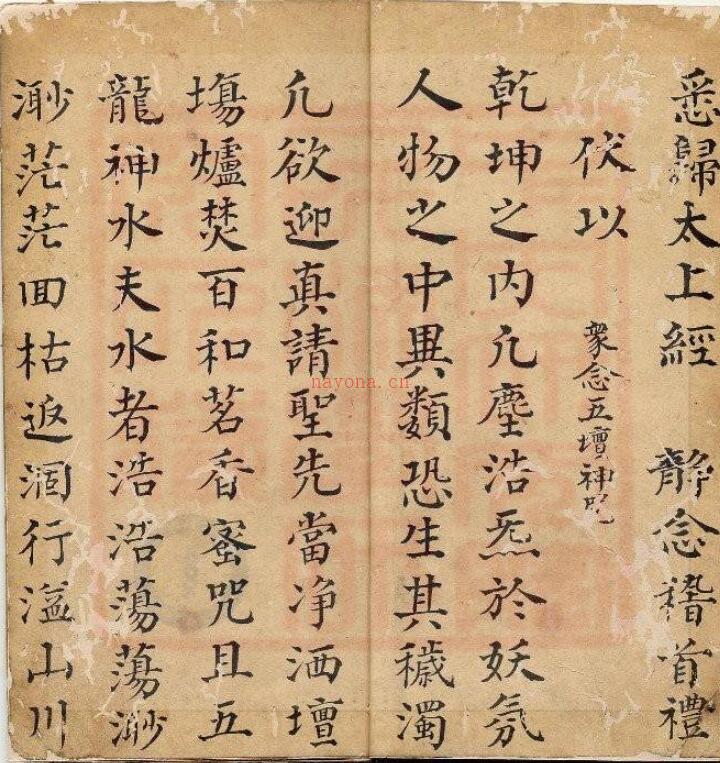 悉歸太上經　靜念稽首禮
伏以
衆念五壇神咒
乾坤之内凢塵浩炁於妖氛
人物之中異類恐生其穢濁
凢欲迎真請聖先當净洒壇
塲爐焚百和茗香宻咒且五
龍神水夫水者浩浩蕩蕩渺
渺茫茫囬枯返涸行溢山川
nayona.cn